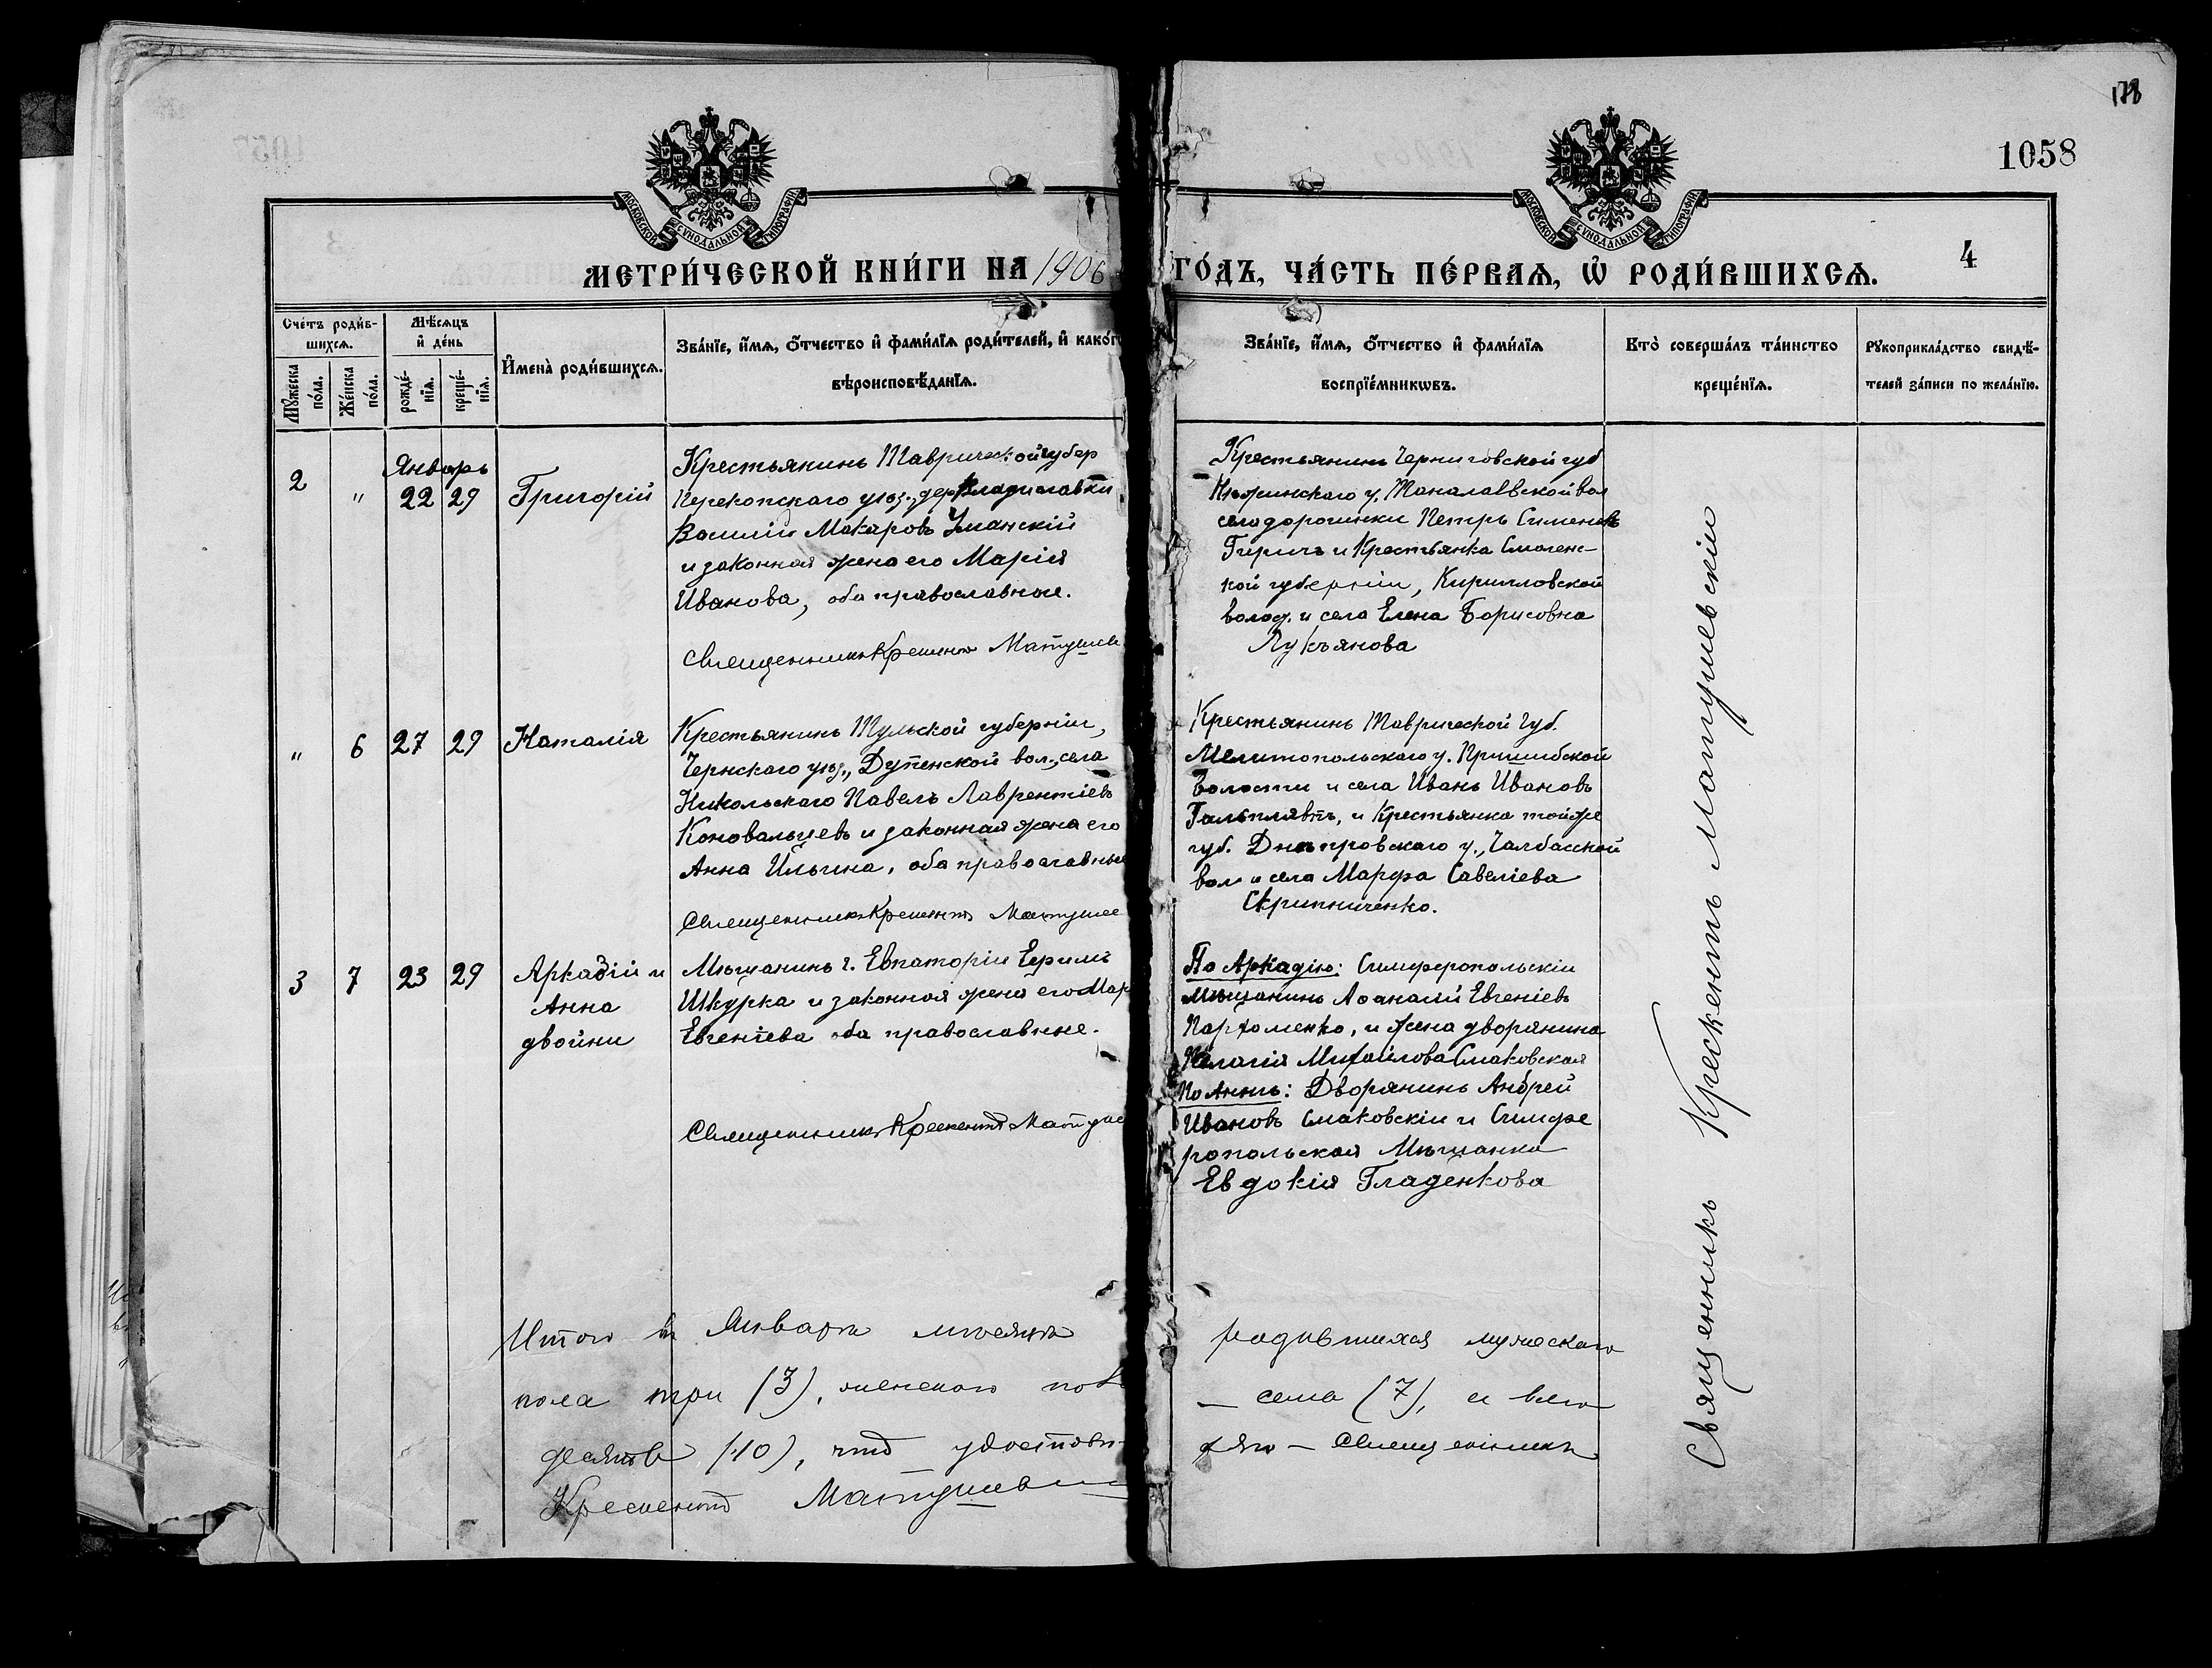 178
1058
4
МОСКОВСКОЙ СУНОДАЛЬНОЙ ТИПОГРАФІИ
МОСКОВСКОЙ СУНОДАЛЬНОЙ ТИПОГРАФІИ
МЕТРИ́ЧЕСКОЙ КНИ́ГИ НА 1906 ГО́ДЪ, ЧА́СТЬ ПЕ́РВАѦ, Ѽ РОДИ́ВШИХСѦ.
Сче́тъ роди́в-
шихсѧ.
Мꙋжеска по́ла.
Же́нска по́ла.
Мѣ́сѧцъ и҆ де́нь
рожде́-нїѧ.
креще́-нїѧ.
И҆мена̀ роди́вшихсѧ.
Зва́нїе, и҆́мѧ, ѻ҆́тчество и҆ фами́лїѧ роди́телей, и҆ како́г
вѣроисповѣ́данїѧ.
Зва́нїе, и҆́мѧ, ѻ҆́тчество и҆ фами́лїѧ
воспрїе́мникѡвъ.
Кто̀ соверша́лъ та́инство
креще́нїѧ.
Рꙋкоприкла́дство свидѣ́-
телей за́писи по жела́нїю.
Январь
2 " 22 29 Григорій
Крестьянинъ Таврической губер
Перекопскаго уѣз., дер. Владиславки
Василій Макаровъ Уманскій
и законная жена его Марія
Иванова, оба православные.
Священникъ Крескентъ Матушев
Крестьянинъ Черниговской губ
Нѣжинскаго у. Талалаевской вол
села дорогинки Петръ Сименовъ
Гиричъ и Крестьянка Смолен-
кой губерніи, Кирилловской
волос. и села Елена Борисовна
Лукъянова
" 6 27 29 Наталія
Крестьянинъ Тульской губерніи,
Чернскаго уѣз., Дупенской вол., села
Никольскаго Павелъ Лаврентіевъ
Коновальцевъ и законная жена его
Анна Ильина, оба православные
Священникъ Крескентъ Матушев
Крестьянинъ Таврической Губ.
Мелитопольскаго у. Пришибской
волости и села Иванъ Ивановъ
и Крестьянка тойже
губ. Днѣпровскаго у., Чалбасской
вол. и села Марфа Савеліева
Скрипниченко.
3 7 23 29 Аркадій и
Анна
двойни
Мѣщанинъ г. Евпаторіи Ефимъ
Шкурка и законная жена его Мар
Евгеніева оба православные.
Священникъ Крескентъ Матуше
По Аркадію: Симферопольскій
мѣщанинъ Афанасій Евгеніевъ
Пархоменко, и жена дворянина
Пелагія Михайлова Смаковская
По Аннѣ: Дворянинъ Андрей
Ивановъ Смаковскій и Симфе
ропольская Мѣщанка
Евдокія Гладенкова
Итого въ Январѣ мѣсяцѣ родившихся мужескаго
пола три (3), женскаго пола – семь (7), а всего
десять (10), что удостовѣ-ряю – Священникъ
Крескентъ Матушевскій
Священникъ Крескентъ Матушевскій